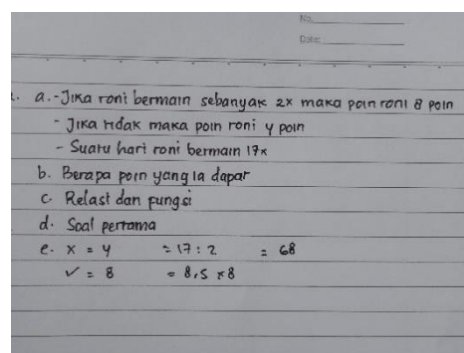 No.
Date:
a. - Jika roni bermain sebanyak 2x maka poin roni 8 poin
- Jika tidak maka poin roni y poin
- Suatu hari roni bermain 17x
b. Berapa poin yang ia dapat
c. Relasi dan fungsi
d. Soal pertama
e. x = y = 17 : 2 = 68
✓ = 8 = 8,5 x 8